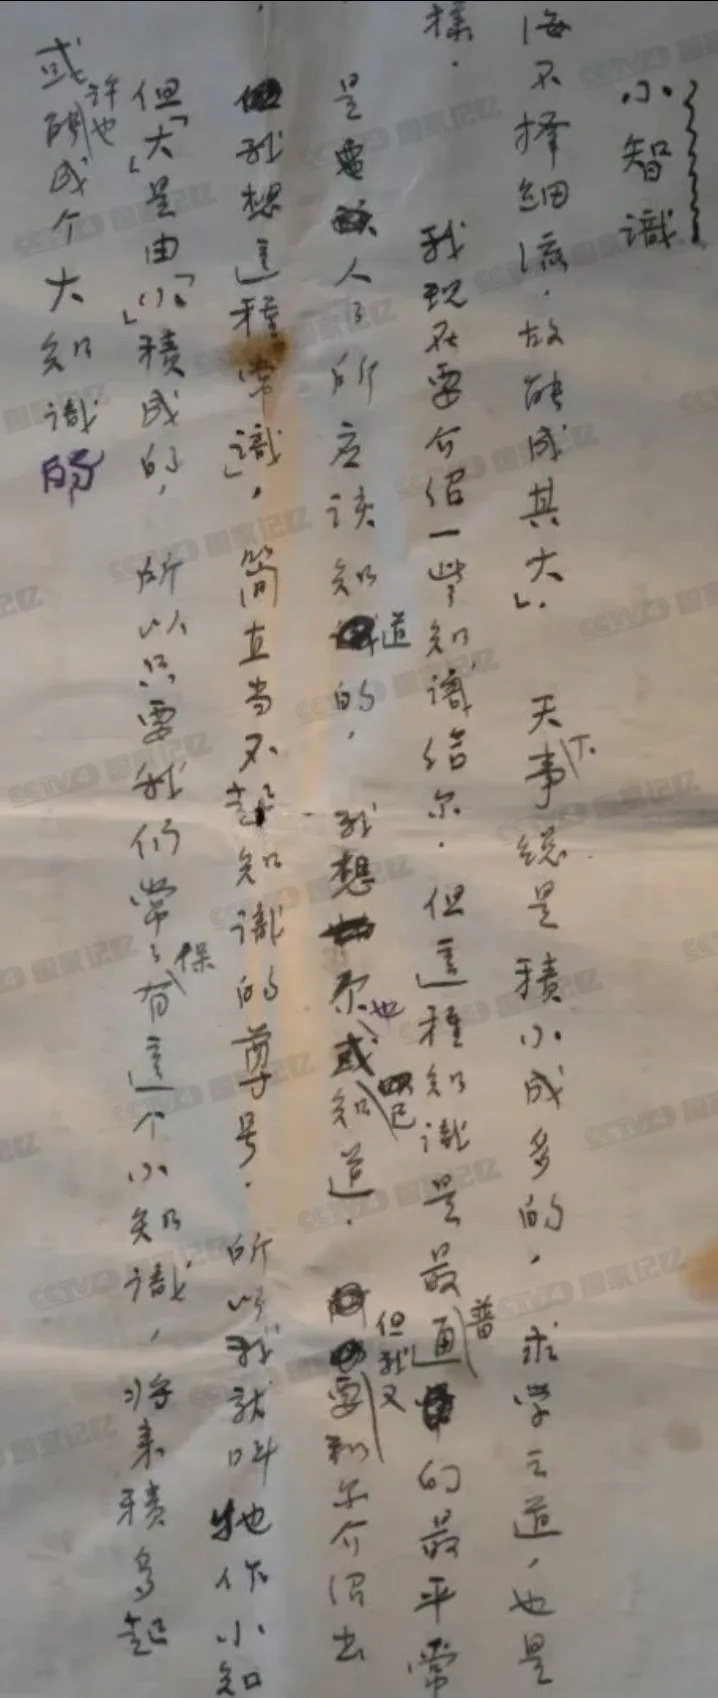 小智識
海不择细流，故能成其大」．天下事总是積小成多的，求学之道，也是
样．
我现在要介绍一些知識给尔．但這種知識是最普通的最平常
是人人所应该知道的，我想尔也或已知道．但我又要和尔介绍出
我想這種「常識」，简直当不起知識的尊号．所以我就叫牠作小知
但「大」是由「小」積成的，所以只要我们常常保有這个小知識，将来積多起
或許也能成个大知識的